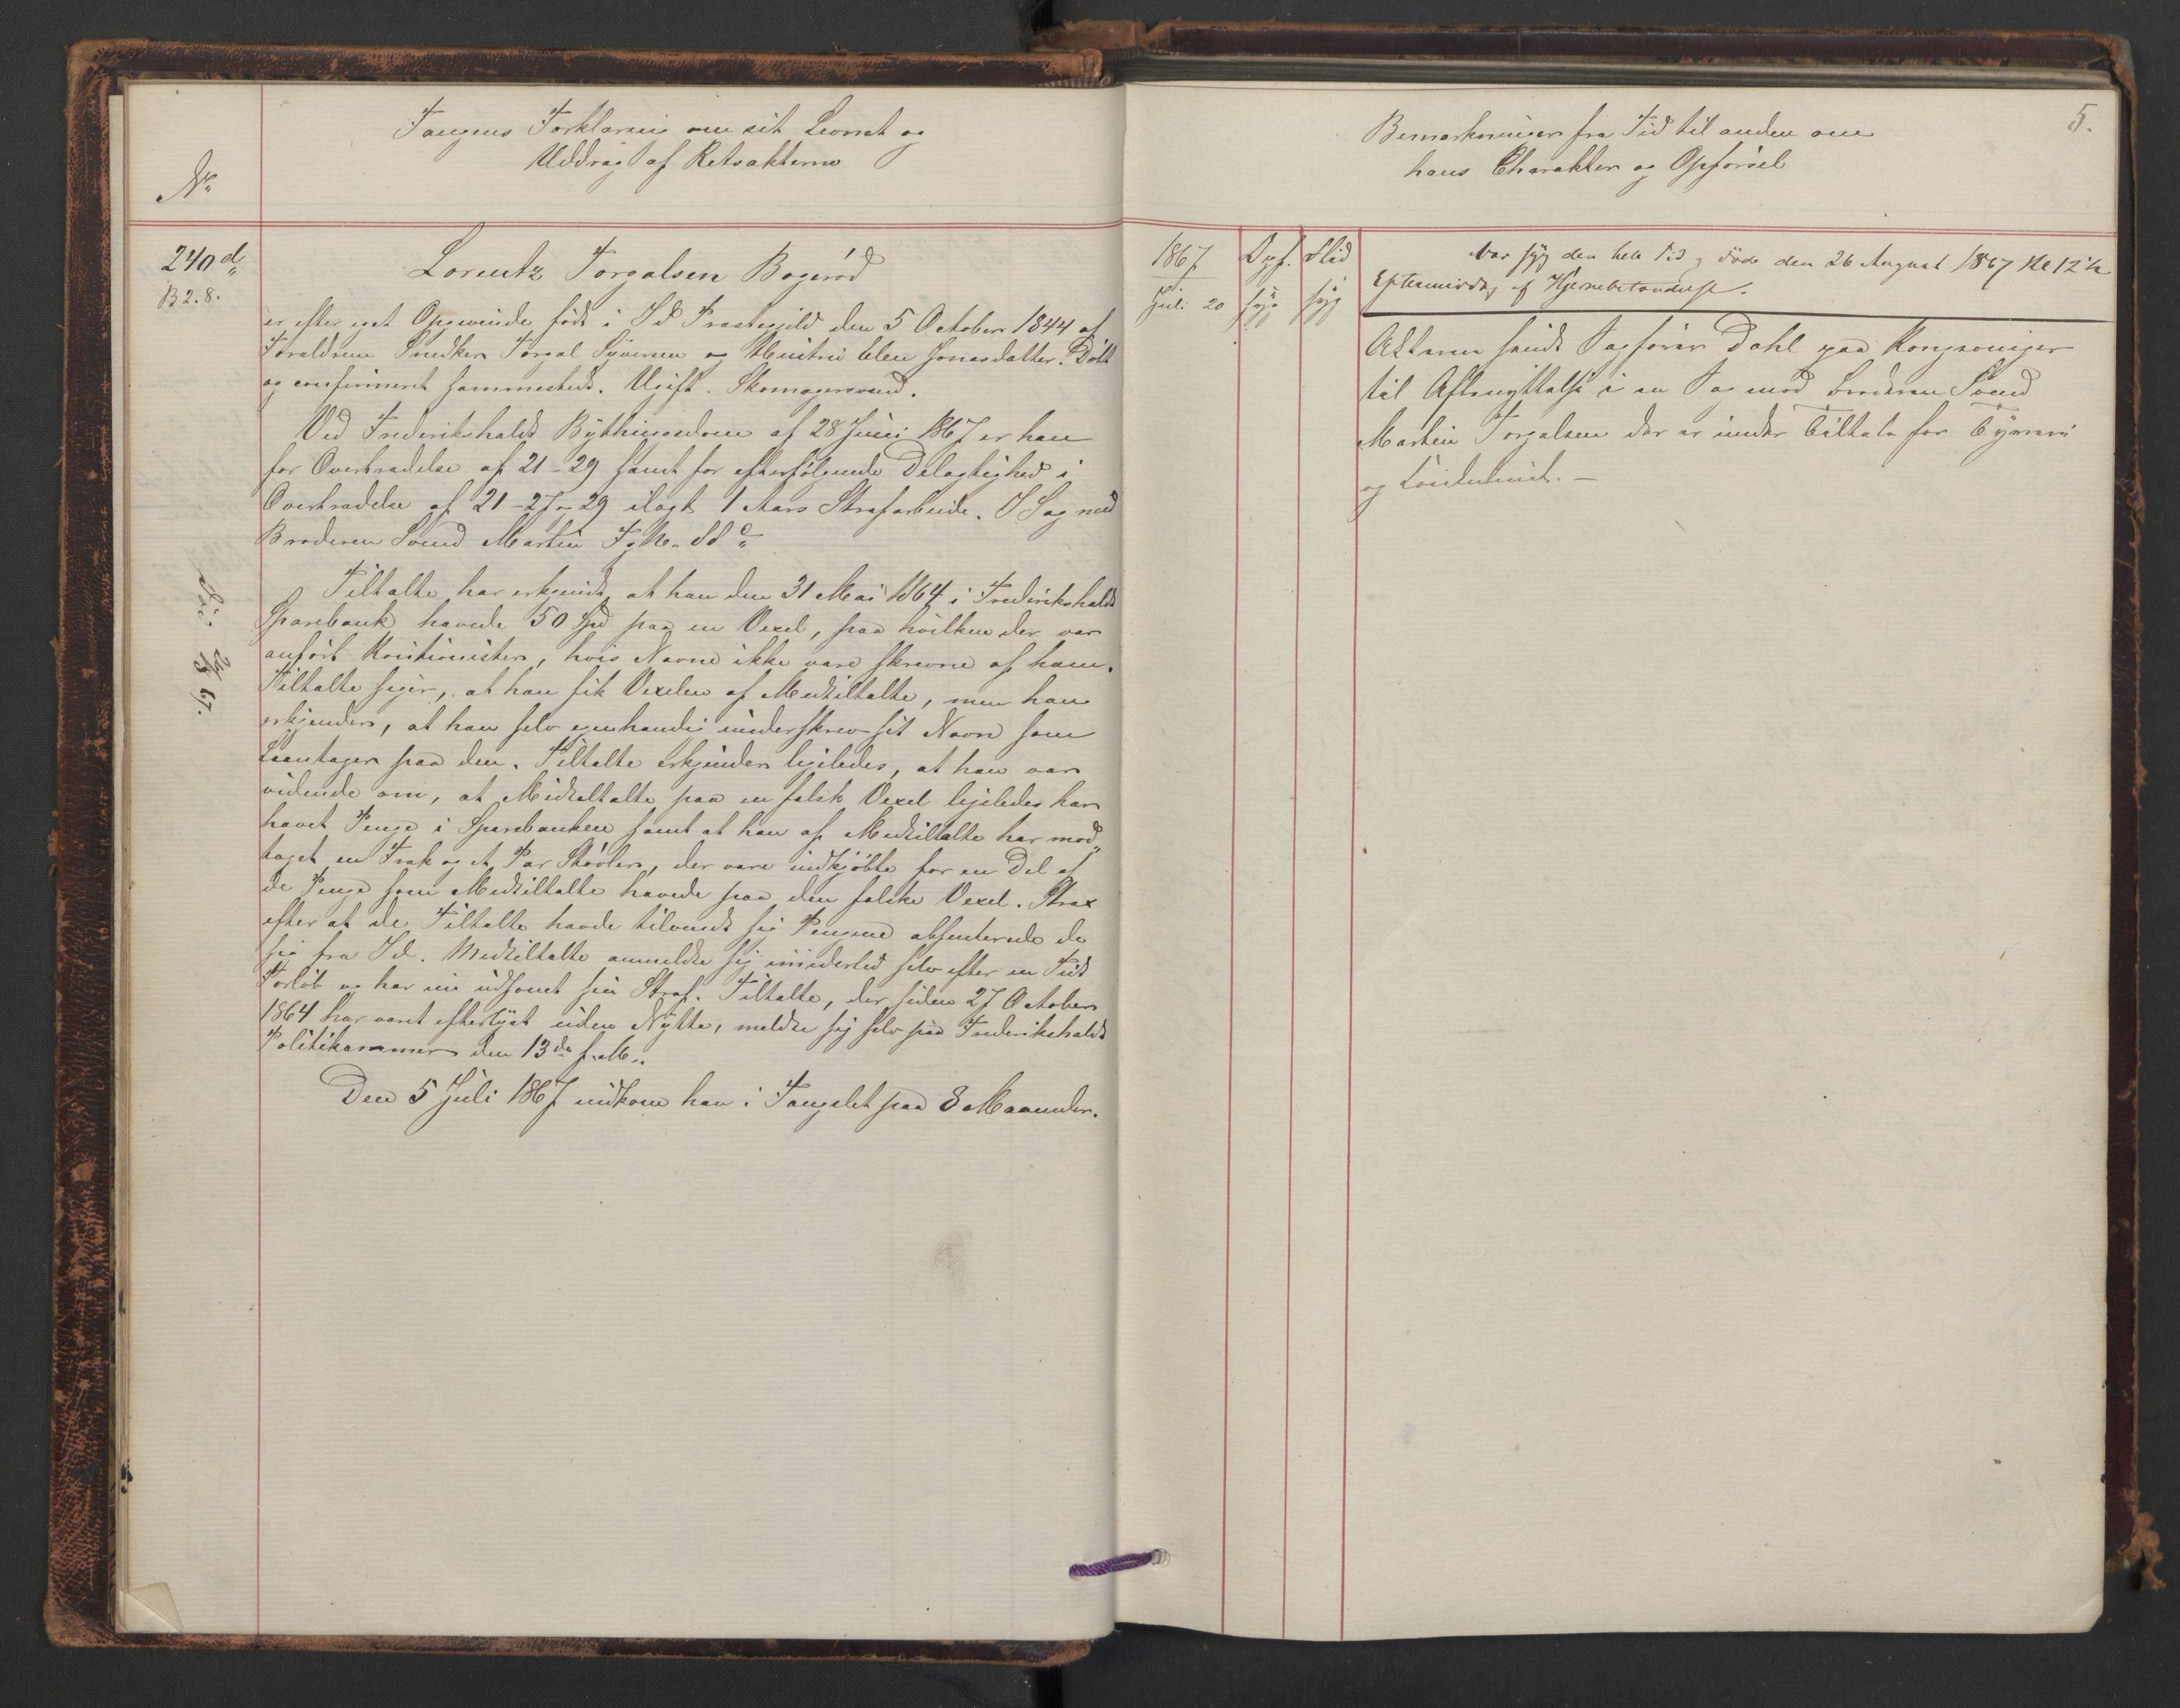 Fangens Forklaring om sit Levnet og
Uddrag af Retsakterne
No
240 d
B 2. 8.
Lorentz Torgalsen Bogerød
er efter eget Opgivende født i Id Præstegjeld den 5 October 1844 af
Forældrene Snedker Torgal Syversen og Hustru Elen Jonasdatter. Døbt
og confirmeret sammesteds. Ugift. Skomagersvend.
Ved Frederikshalds Bythingsdom af 28 Juni 1867 er han
for Overtrædelse af 21-29 samt for efterfølgende Delagtighed i
Overtrædelse af 21-27-29 ilagt 1 Aars Strafarbeide. I Sag med
Broderen Svend Martin F. No. 88 c
Tiltalte har erkjendt, at han den 31 Mai 1864 i Frederikshalds
Sparebank hævede 50 Spd paa en Vexel, paa hvilken der var
anført Kautionister, hvis Navne ikke vare skrevne af ham.
Tiltalte siger, at han fik Vexelen af Medtiltalte, men han
erkjender, at han selv egenhændig underskrev sit Navn som
Laantager paa den. Tiltalte erkjender ligeledes, at han var
vidende om, at Medtiltalte paa en falsk Vexel ligeledes har
hævet Penge i Sparebanken samt at han af Medtiltalte har mod„
taget en Frak og et Par Støvler, der vare indkjøbte for en Del af
de Penge som Medtiltalte hævede paa den falske Vexel. Strax
efter at de Tiltalte havde tilvendt sig Pengene absenterede de
sig fra Id. Medtiltalte anmeldte sig imidlertid selv efter en Tids
Forløb og har nu udsonet sin Straf. Tiltalte, der siden 27 October
1864 har været efterlyst uden Nytte, meldte sig selv paa Frederikshalds
Politikammer den 13de f. M.
Den 5 Juli 1867 indkom han i Fangslet paa 8 Maaneder.
Død 26/8 67.
Bemærkninger fra Tid til anden om
hans Charakter og Opførsel
5.
1867 Opf. Flid
Juli 20 syg syg
Var syg den hele Tid og døde den 26 August 1867 Kl 12 1/2
Eftermiddag af Hjernebetændelse.
Akterne sendt Sagfører Dahl paa Kongsvinger
til Afbenyttelse i en Sag mod Broderen Svend
Martin Torgalsen der er under Tiltale for Tyveri
og